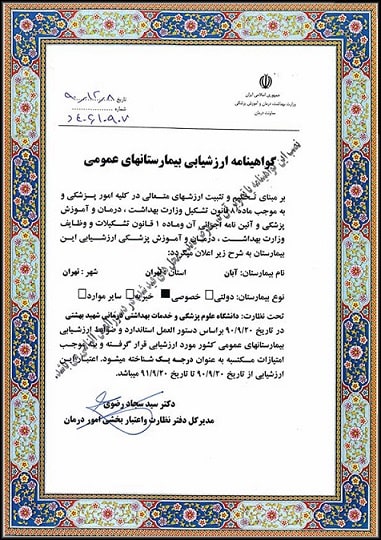 جمهوری اسلامی ایران
وزارت بهداشت، درمان و آموزش پزشکی
معاونت درمان
تاریخ
شماره
گواهینامه ارزشیابی بیمارستانهای عمومی
بر مبنای تحکیم و تثبیت ارزشهای متعالی در کلیه امور پزشکی و
به موجب ماده ۸ قانون تشکیل وزارت بهداشت ، درمان و آموزش
پزشکی و آئین نامه اجرائی آن وماده ۱ قانون تشکیلات و وظایف
وزارت بهداشت ، درمان و آموزش پزشکی ارزشیابی این
بیمارستان به شرح زیر اعلام میگردد:
نام بیمارستان: آبان استان: تهران شهر: تهران
نوع بیمارستان: دولتی خصوصی خیریه سایر موارد
تحت نظارت: دانشگاه علوم پزشکی و خدمات بهداشتی درمانی شهید بهشتی
در تاریخ ۹۰/۹/۲۰ براساس دستور العمل استاندارد و ضوابط ارزشیابی
بیمارستانهای عمومی کشور مورد ارزشیابی قرار گرفته و به موجب
امتیازات مکتسبه به عنوان درجه یک شناخته میشود. اعتبار این
ارزشیابی از تاریخ ۹۰/۹/۲۰ تا تاریخ ۹۱/۹/۲۰ میباشد.
دکتر سید سجاد رضوی
مدیرکل دفتر نظارت واعتبار بخشی امور درمان